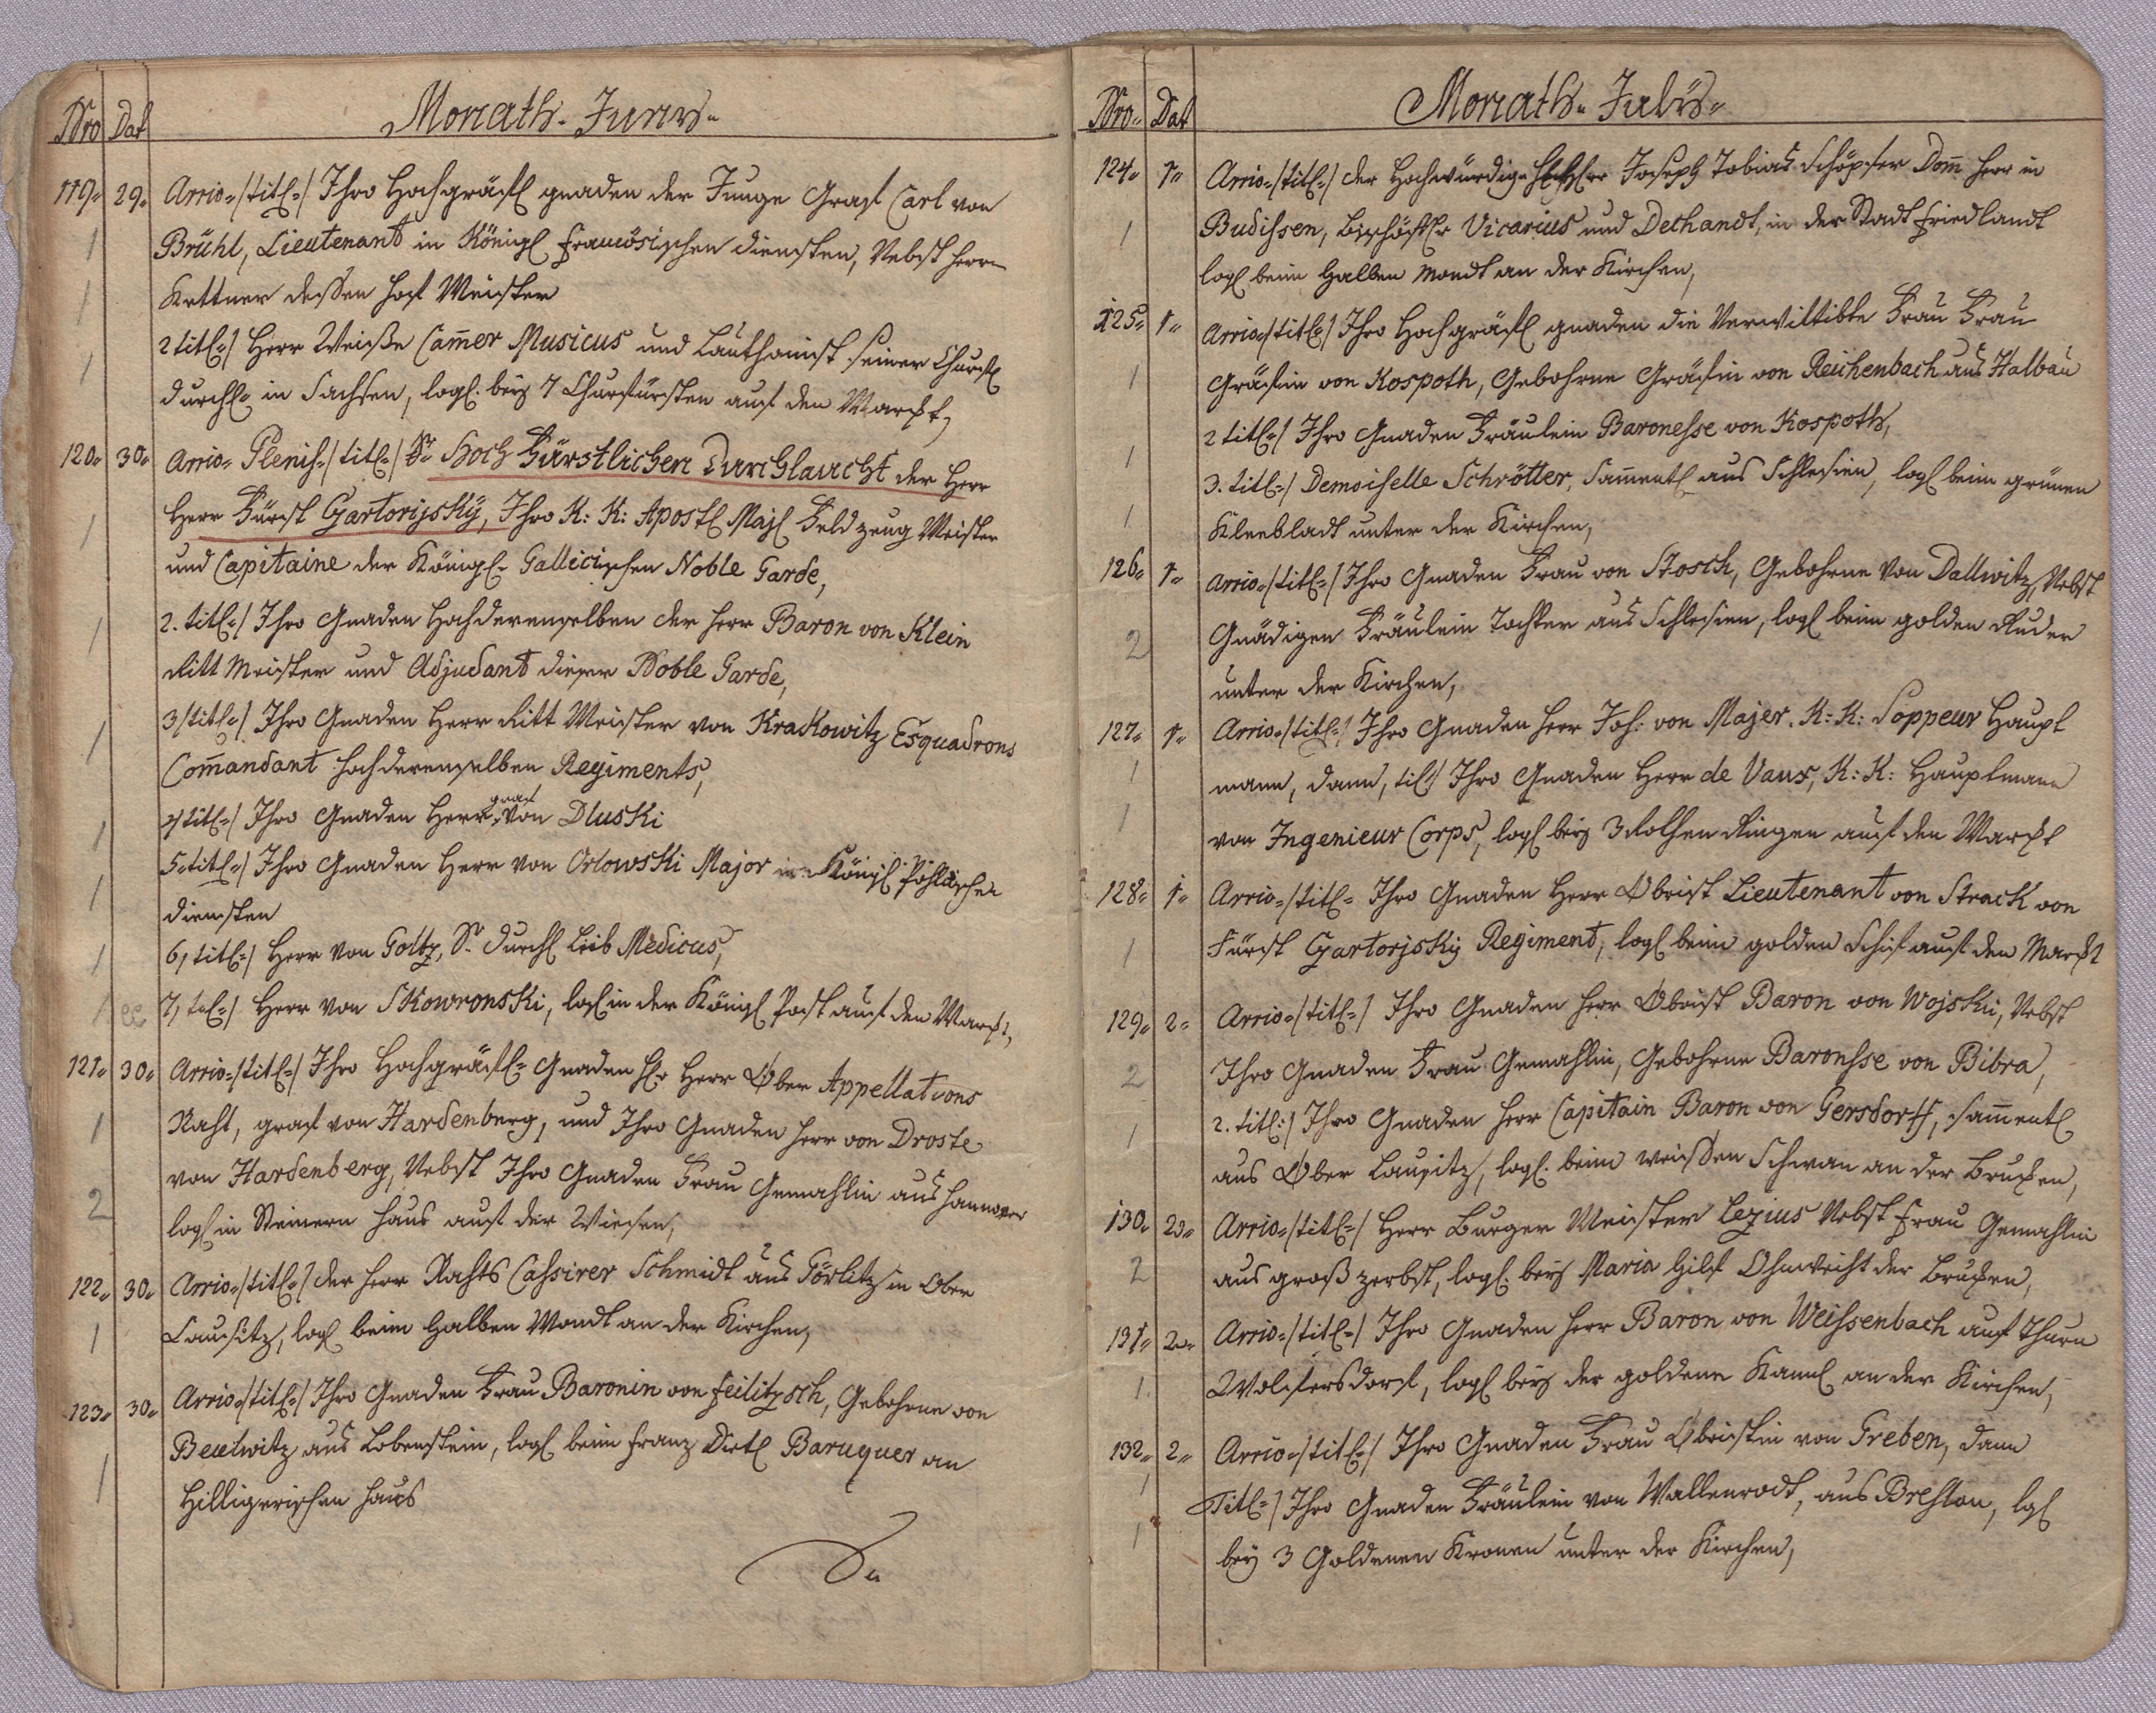 Nro Dat Monath Junius
119. 29. Arrio /titl/ Ihro Hochgräfl gnaden der Junge Graf Carl von
1 Brühl, Lieutenant in Königl französischen diensten, Nebst Herrn
1 Kettner dessen Hof Meister
1 2 titl/ Herr Weiße Cam̄er Musicus und Lauthanist seiner Churfl
durchl in Sachsen, logl. beÿ 7 Churfürsten auf den Marckt,
120. 30. Arrio Plenis /titl/ Sr Hoch Fürstlichen Durchlaucht der Herr
1 Herr Fürst Czartorijskÿ, Ihro K: K: Apostl Majl Feld zeug Meister
und Capitaine der Königl Gallicischen Noble Garde,
1 2. titl/ Ihro Gnaden Hochderenselben der Herr Baron von Klein
Ritt Meister und Adjudant dieser Noble Garde,
1 3 /titl/ Ihro Gnaden Herr Ritt Meister von Krakowitz Esquadrons
Com̄andant Hochderenselben Regiments,
1 4/ titl/ Ihro Gnaden Herr graf von Dluski
1 5 titl/ Ihro Gnaden Herr von Orlowski Major in Königl Pohlnischen
diensten
1 6, titl/ Herr von Goltz, Sr. Durchl Leib Medicus,
1 7, titl/ Herr von Skowronski, logl in der Königl Post auf den Marckt,
121. 30. Arrio /titl/ Ihro Hochgräfl Gnaden Hr Herr Ober Appellations
1 Raht, graf von Hardenberg, und Ihro Gnaden Herr von Droste
von Hardenberg, Nebst Ihro Gnaden Frau Gemahlin aus Hannover
2 logl in Steinern Haus auf der Wiesen,
122. 30. Arrio /titl/ der Herr Rahts Cassirer Schmidt aus Görlitz in Ober
1 Lausitz, logl beim Halben Mondt an der Kirchen,
123. 30. Arrio /titl/ Ihro Gnaden Frau Baronin von Feilitzsch, Gebohrne von
Beulwitz aus Lobenstein, logl beim Franz Dietl Baruquer an
1 Hilligerischen Haus
Nro Dat Monath Julius
124. 1. Arrio /titl/ der Hochwürdige Herr Joseph Tobias Schöpfer Dom̄ Herr in
1 Budissen, Bischöfler Vicarius und Dechandt, in der Stadt Friedlandt
logl beim Halben Mondt an der Kirchen,
125. 1. Arrio /titl/ Ihro Hochgräfl gnaden die Verwittibte Frau Frau
1 Gräfin von Kospoth, Gebohrne Gräfin von Reichenbach aus Halbau
1 2 titl/ Ihro Gnaden Fräulein Baronesse von Kospoth,
3. titl/ Demoiselle Schrötter, Sam̄entl aus Schlesien, logl beim grünen
1 Kleebladt unter der Kirchen,
126. 1. Arrio /titl/ Ihro Gnaden Frau von Stosch, Gebohrne von Dallwitz, Nebst
2 Gnädigen Fräulein Tochter aus Schlesien, logl beim golden Ruder
unter der Kirchen,
127. 1. Arrio /titl/ Ihro Gnaden Herr Joh: von Majer. K: K: Soppeur Haupt
1 mann, dann, titl/ Ihro Gnaden Herr de Vaux, K: K: Hauptmann
1 von Ingenieur Corps, logl beÿ 3 Rothen Ringen auf den Marckt
128. 1. Arrio /titl Ihro Gnaden Herr Obrist Lieutenant von Strack von
1 Fürst Czartorjskÿ Regiment, logl beim golden Schif auf den Marckt
129. 2. Arrio /titl/ Ihro Gnaden Herr Obrist Baron von Wojski, Nebst
2 Ihro Gnaden Frau Gemahlin, Gebohrne Baronsse von Bibra,
1 2. titl:/ Ihro Gnaden Herr Capitain Baron von Gersdorff, Sam̄entl
aus Ober Lausitz, logl. beim weissen Schwan an der Brucken,
130. 2. Arrio /titl/ Herr Burger Meister Lezius Nebst Frau Gemahlin
2 aus groß zerbst, logl. beÿ Maria Hilf Ohnweiht der Brucken,
131. 2. Arrio /titl/ Ihro Gnaden Herr Baron von Weissenbach auf Thurn
1 Wolfersdorf, logl beÿ der goldene Kannl an der Kirchen,
132. 2. Arrio /titl/ Ihro Gnaden Frau Obristin von Greben, dann
1 Titl/ Ihro Gnaden Fräulein von Wallenrodt, aus Breslau, logl
1 beÿ 3 Goldenen Kronen unter der Kirchen,